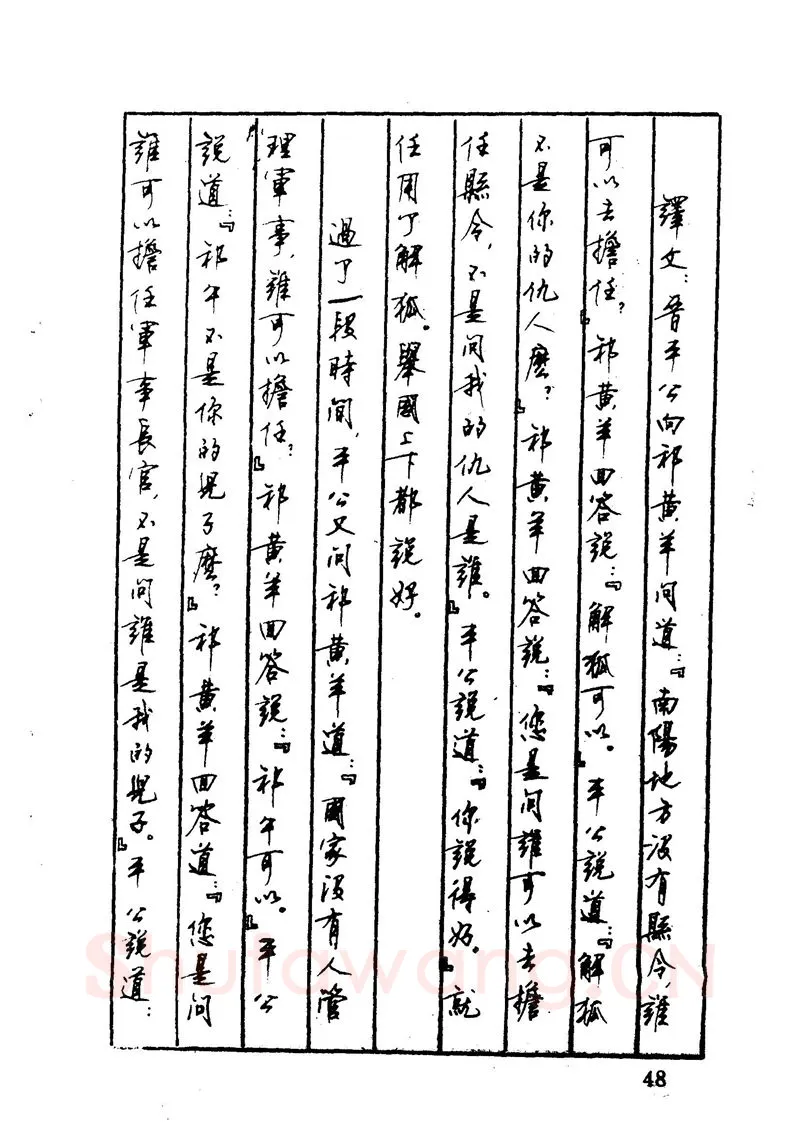 譯文：晉平公向祁黃羊問道：『南陽地方沒有縣令，誰
可以去擔任？』祁黃羊回答說：『解狐可以。』平公說道：『解狐
不是你的仇人麽？』祁黃羊回答說：『您是問誰可以去擔
任縣令，不是問我的仇人是誰。』平公說道：『你說得好。』就
任用了解狐。舉國上下都說好。
過了一段時間，平公又問祁黃羊道：『國家沒有人管
理軍事，誰可以擔任？』祁黃羊回答說：『祁午可以。』平公
說道：『祁午不是你的兒子麽？』祁黃羊回答道：『您是問
誰可以擔任軍事長官，不是問誰是我的兒子。』平公說道：
48
Shufawang.CN